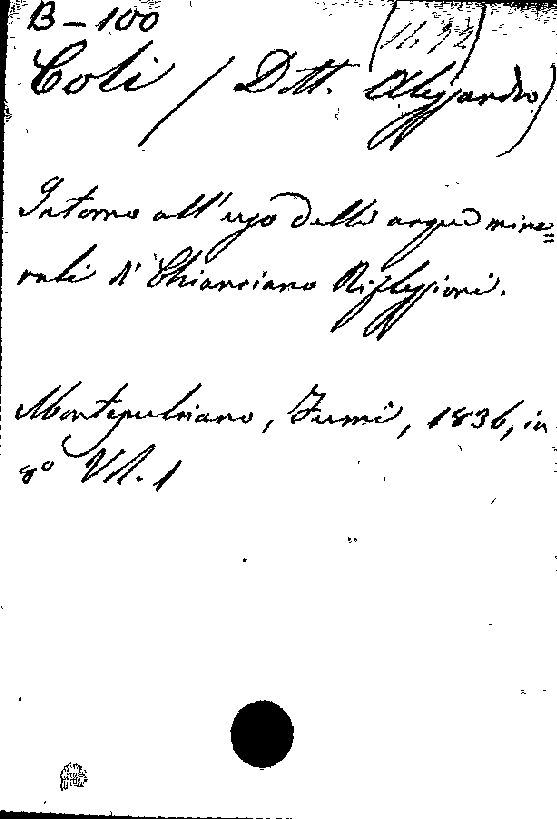 B – 100
(16.32)
Coli (Dott. Alessandro)
Intorno all'uso delle acque mine=
rali di Chianciano Riflessioni.
Montepulciano, Fumi, 1836, in
8° Vl. 1